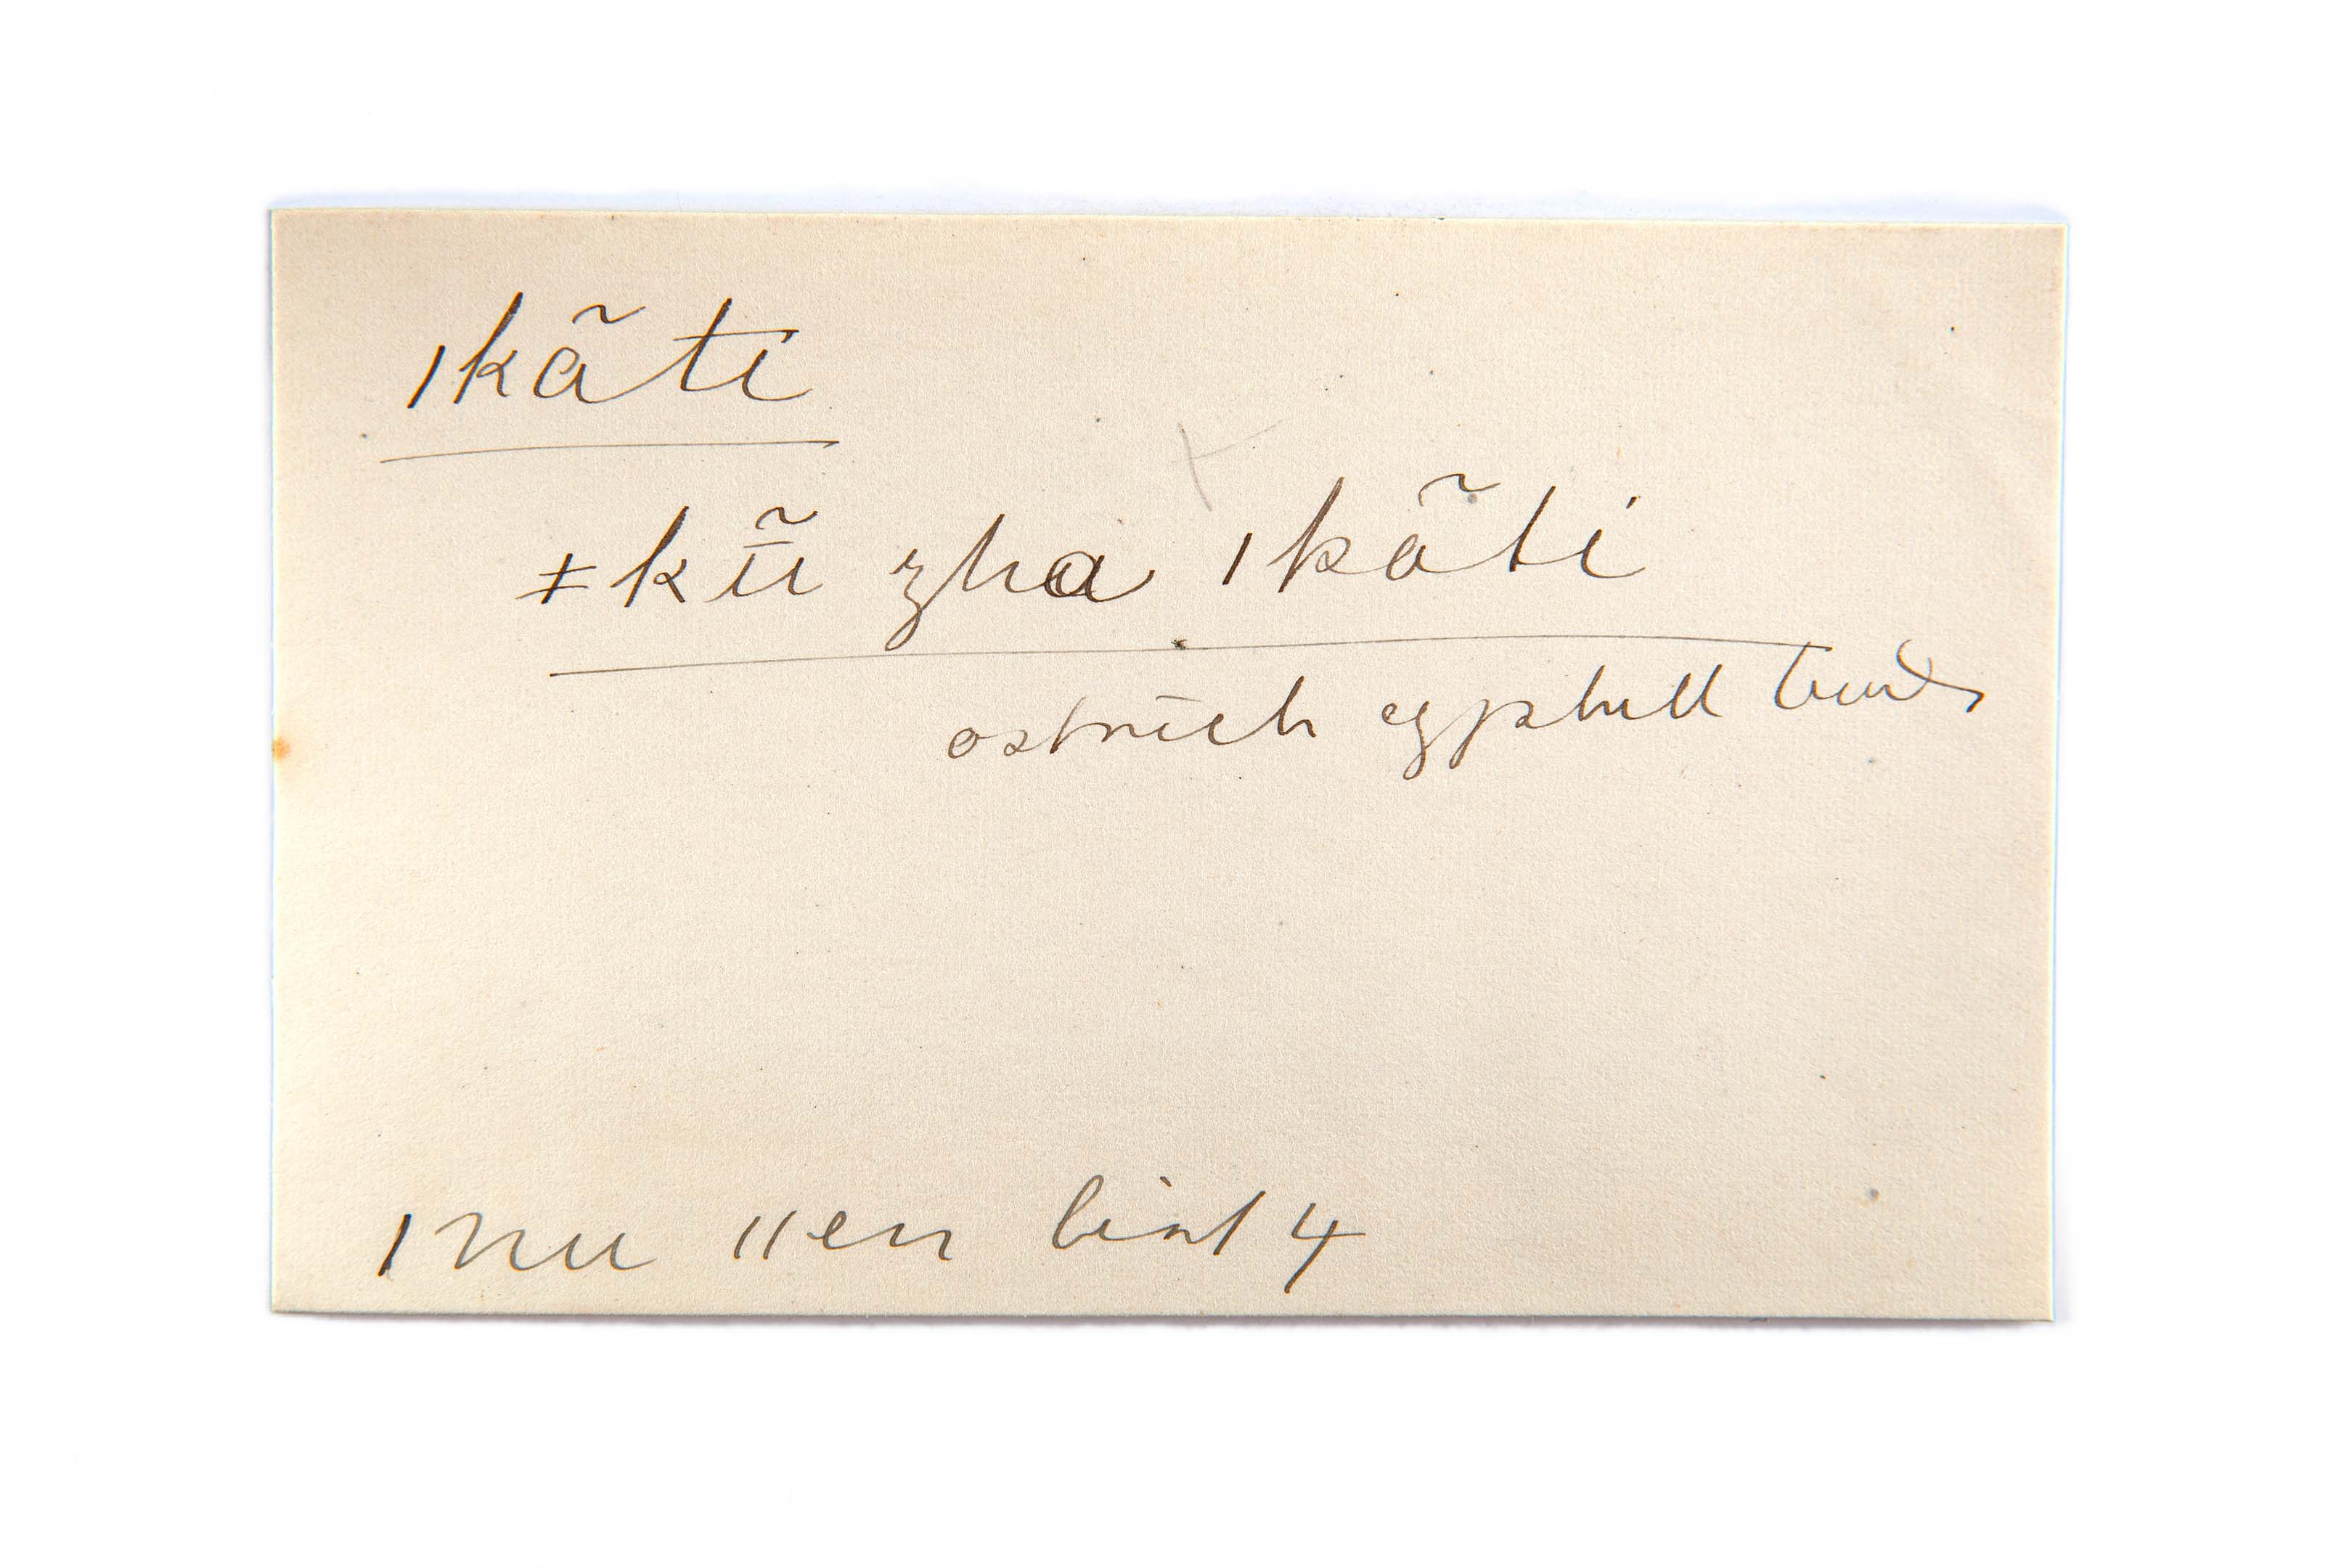 ǀkãti
ǂkū̃ zha ǀkãti
ostrich eggshell beads
ǀnu ǁen list 4